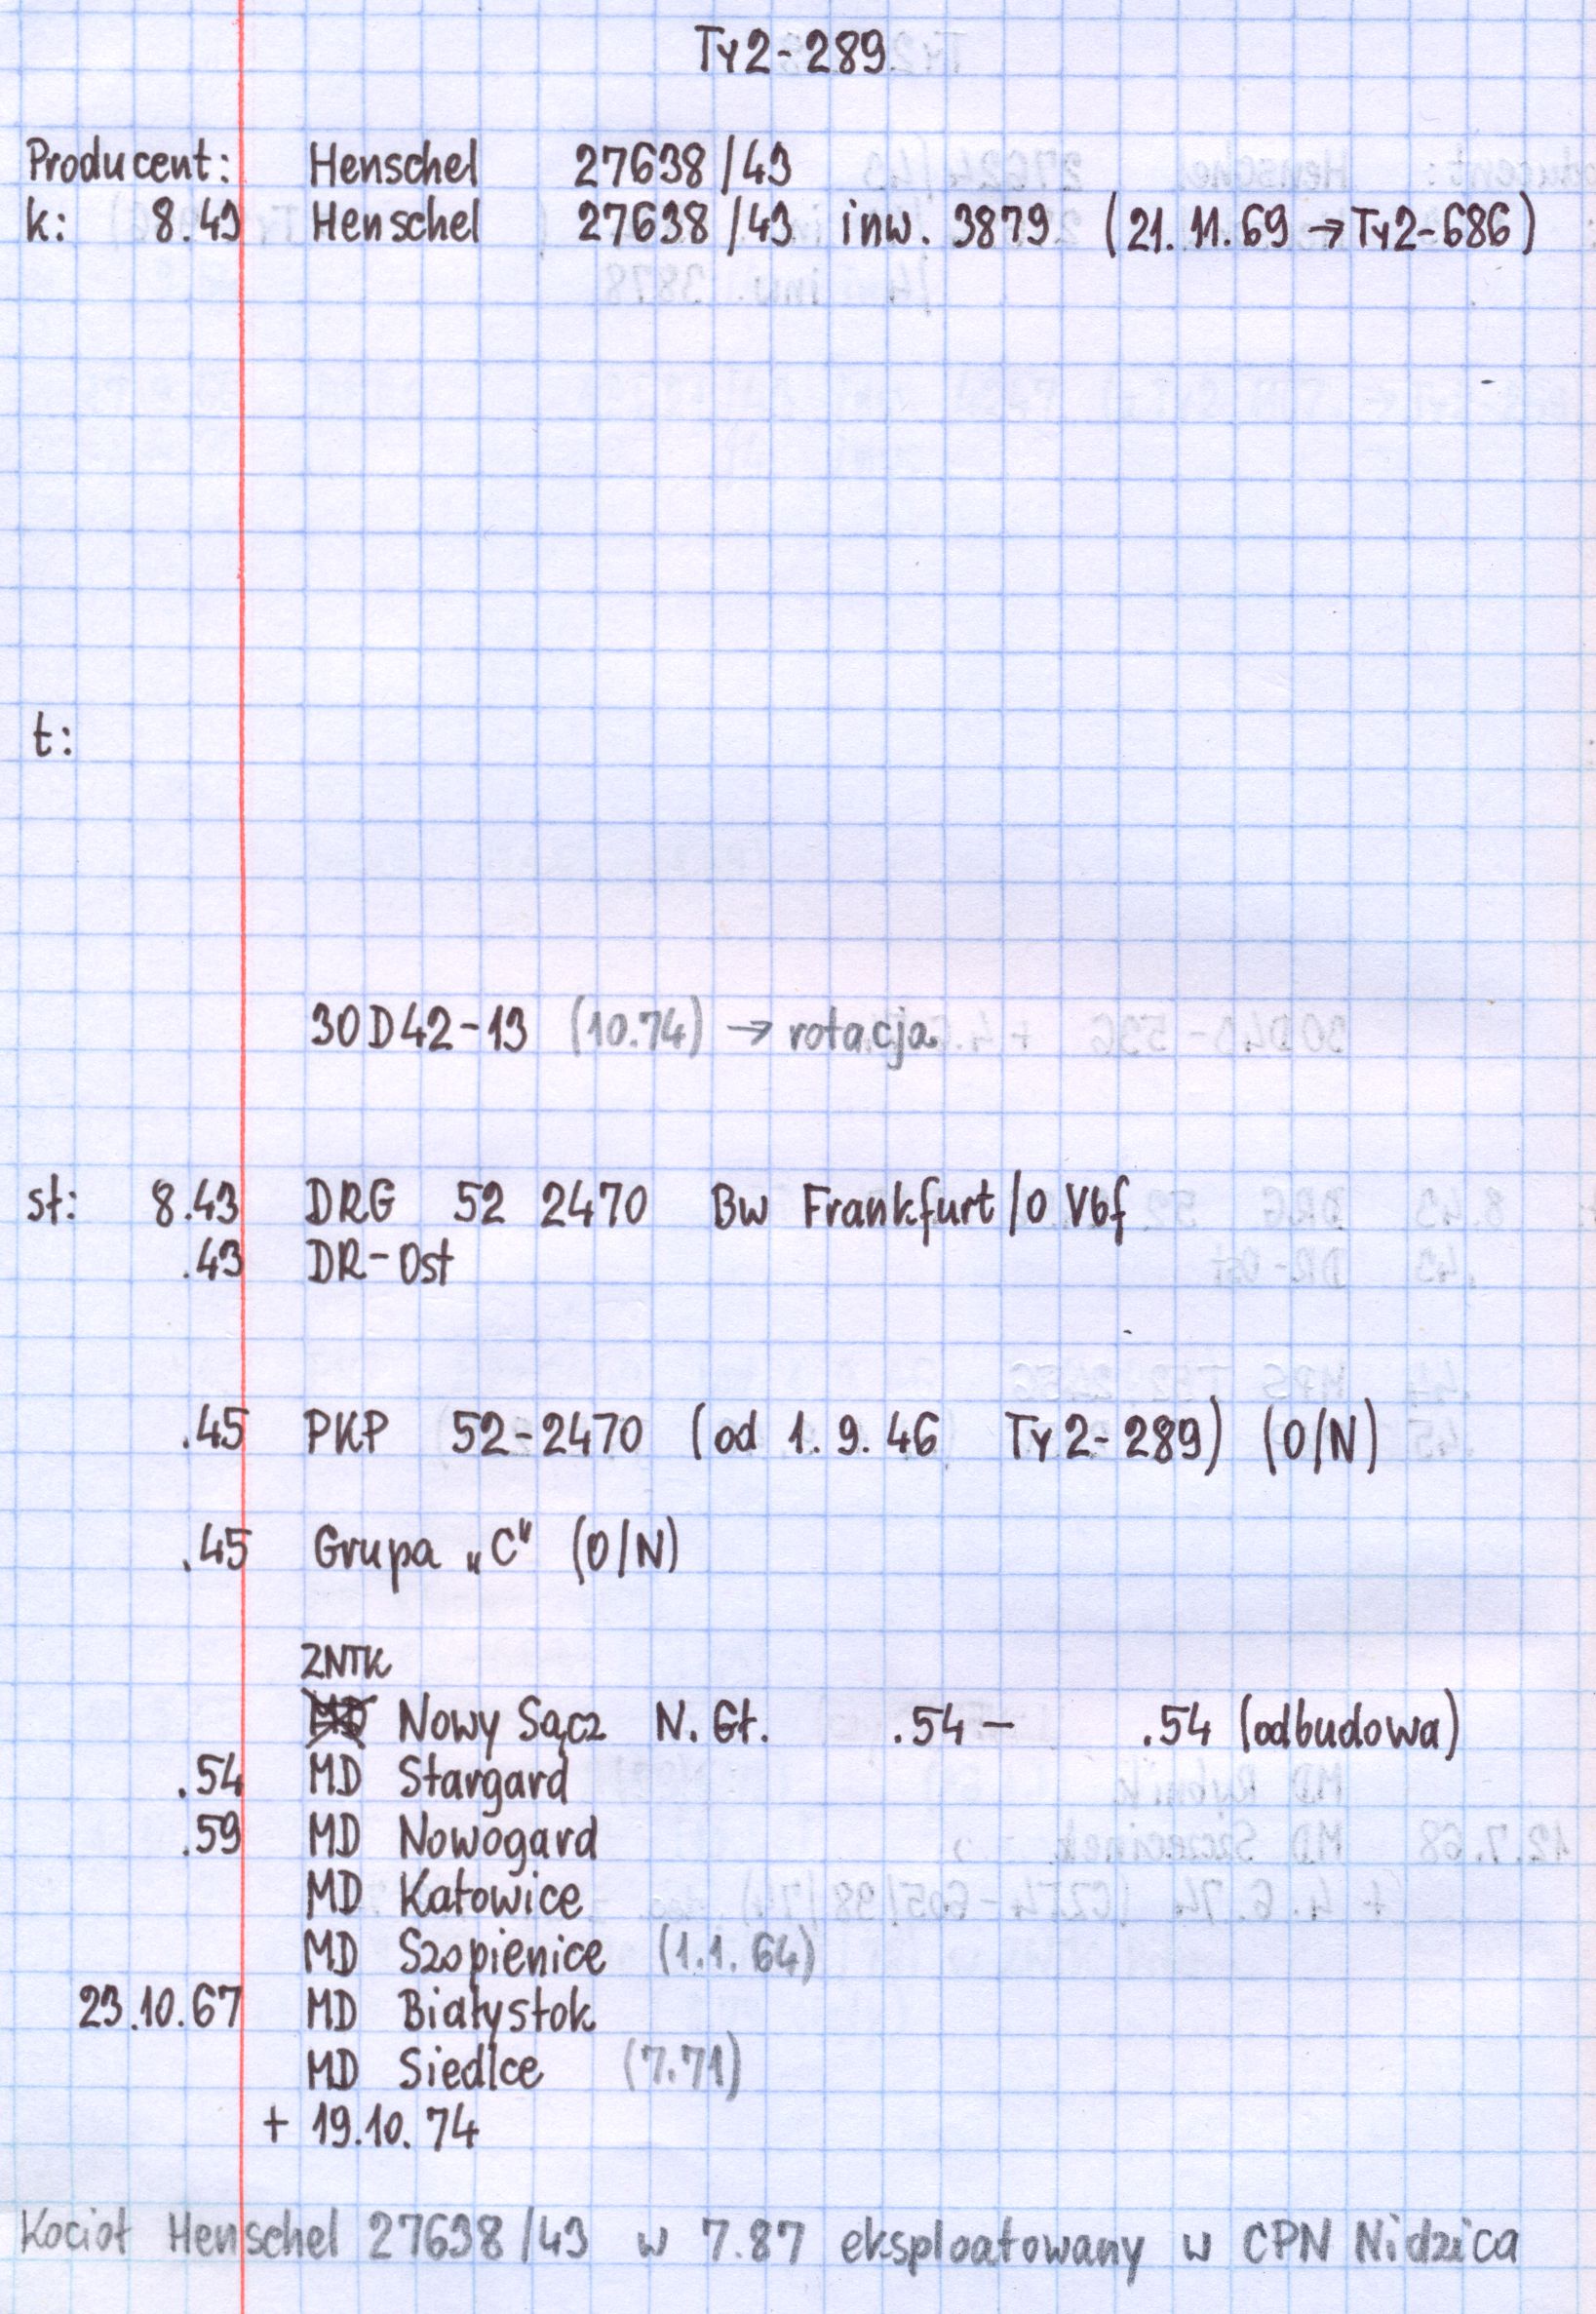 Ty2-289
Producent: Henschel 27638/43
k: 8.43 Henschel 27638/43 inw. 3879 (21.11.69 → Ty2-686)
t:
30D42-13 (10.74) → rotacja
st: 8.43 DRG 52 2470 Bw Frankfurt/O Vbf
.43 DR-Ost
.45 PKP 52-2470 (od 1.9.46 Ty2-289) (O/N)
.45 Grupa „C" (O/N)
ZNTK
MD Nowy Sącz N.Gł. .54 - .54 (odbudowa)
.54 MD Stargard
.59 MD Nowogard
MD Katowice
MD Szopienice (1.1.64)
23.10.67 MD Białystok
MD Siedlce (7.71)
+ 19.10.74
Kocioł Henschel 27638/43 w 7.87 eksploatowany w CPN Nidzica